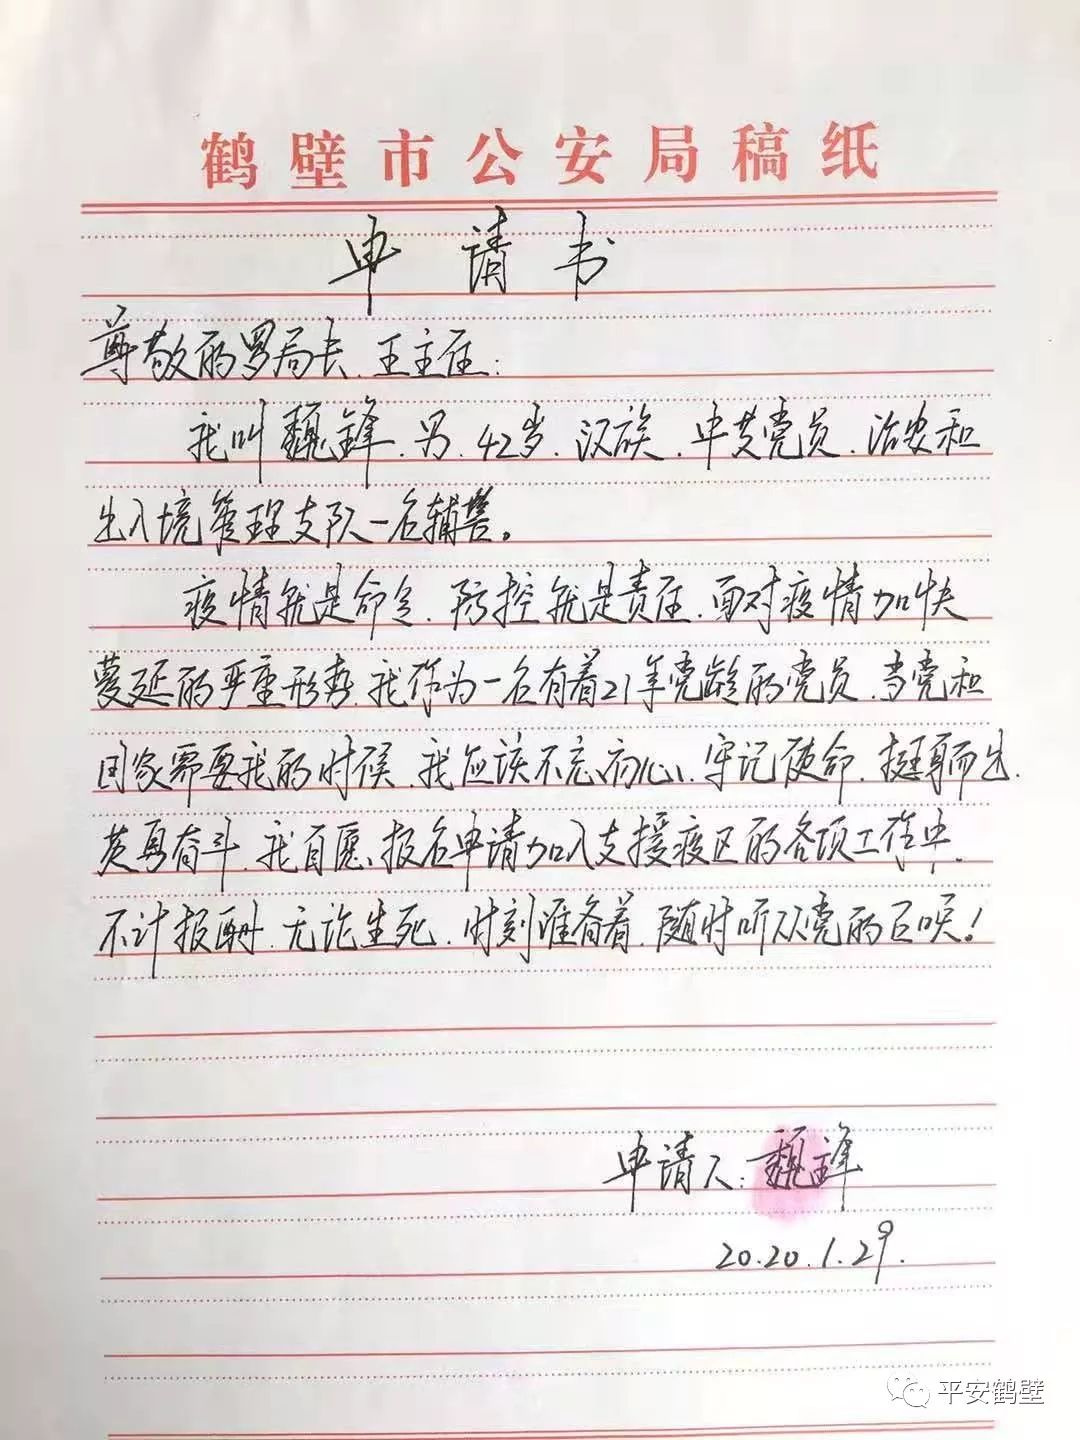 鹤壁市公安局稿纸
申请书
尊敬的罗局长、王主任:
我叫魏锋、男、42岁、汉族、中共党员、治安和
出入境管理支队一名辅警。
疫情就是命令、防控就是责任、面对疫情加快
蔓延的严重形势、我作为一名有着21年党龄的党员、当党和
国家需要我的时候、我应该不忘初心、牢记使命、挺身而出、
英勇奋斗、我自愿报名申请加入支援疫区的各项工作中、
不计报酬、无论生死、时刻准备着、随时听从党的召唤!
申请人:魏锋
2020.1.29.
平安鹤壁